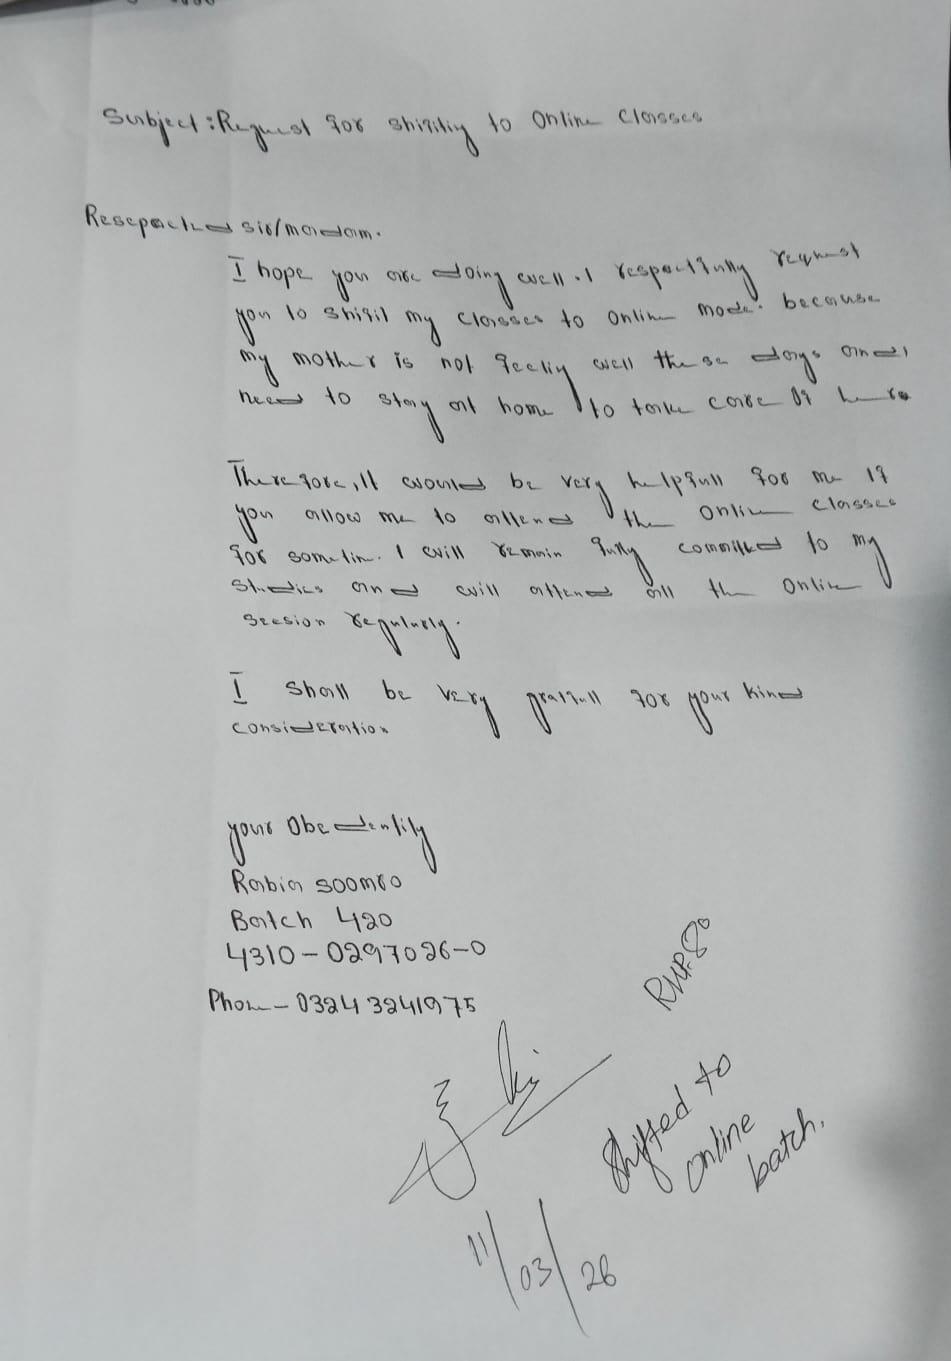 Subject: Request for shifitiy to Online Classes
Resepected sir/madam.
I hope you are doing well. I respectfully request
you to shifit my classes to online mode. because
my mother is not feeliy well these days and I
need to stay at home to take care of here
Therefore, It would be very helpfull for me If
you allow me to attened the online classes
for sometim. I will remain fully committed to my
Studies and will attened all the online
seesion regularly.
I shall be very gratfull for your kined
consideration
your Obedentily
Rabia soomro
Batch 420
4310-0297026-0
Phone-03243241975
shifted to
online
batch.
11/03/26